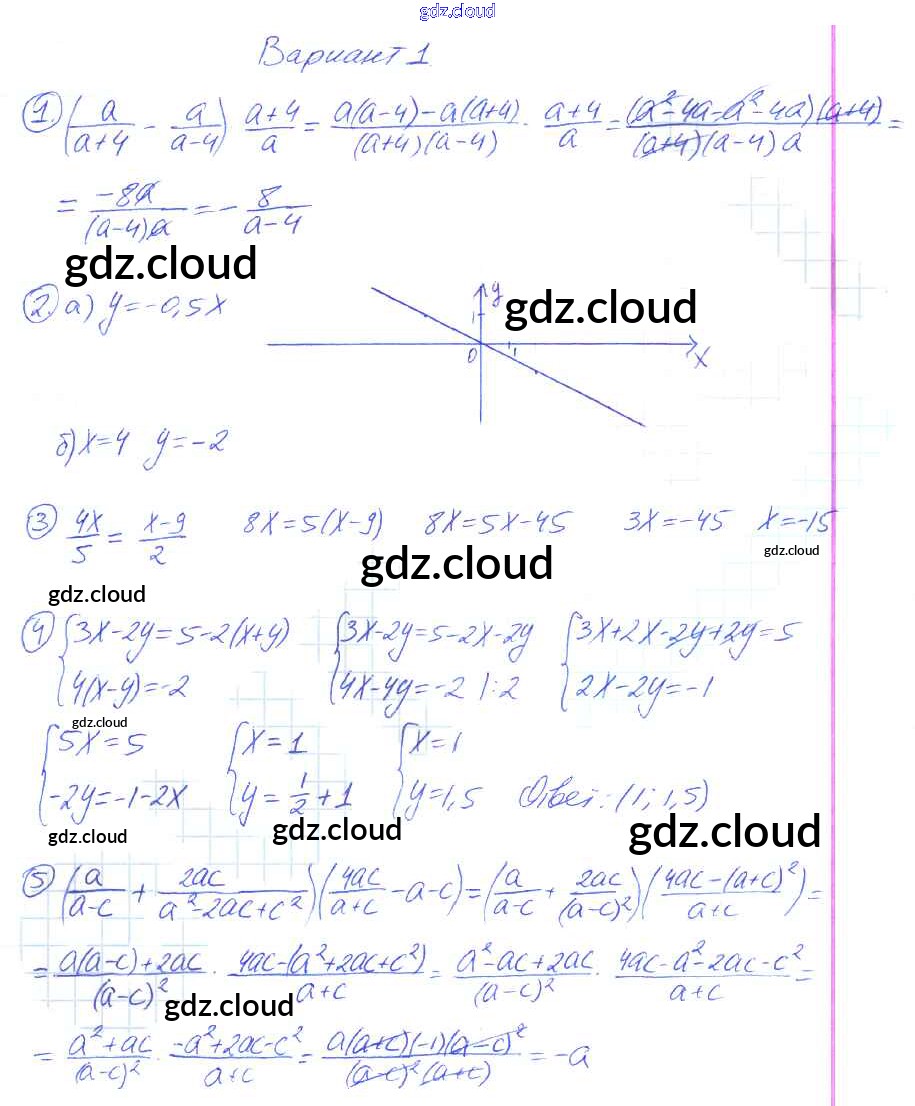 gdz.cloud
Вариант 1
1. (a/(a+4) - a/(a-4)) (a+4)/a = (a(a-4)-a(a+4))/((a+4)(a-4)) · (a+4)/a = ((a²-4a-a²-4a)(a+4))/((a+4)(a-4)a) =
= (-8a)/((a-4)a) = - 8/(a-4)
gdz.cloud
2. а) y=-0,5x
y
gdz.cloud
1
0 1 x
б) x=4 y=-2
3 4x/5 = (x-9)/2 8x=5(x-9) 8x=5x-45 3x=-45 x=-15
gdz.cloud
gdz.cloud
gdz.cloud
4 {3x-2y=5-2(x+y) {3x-2y=5-2x-2y {3x+2x-2y+2y=5
4(x-y)=-2 4x-4y=-2 |:2 2x-2y=-1
gdz.cloud
{5x=5 {x=1 {x=1
-2y=-1-2x y=1/2+1 y=1,5 Ответ: (1; 1,5)
gdz.cloud gdz.cloud gdz.cloud
5 (a/(a-c) + 2ac/(a²-2ac+c²)) (4ac/(a+c) -a-c) = (a/(a-c) + 2ac/(a-c)²) ((4ac-(a+c)²)/(a+c)) =
= (a(a-c)+2ac)/(a-c)² · (4ac-(a²+2ac+c²))/(a+c) = (a²-ac+2ac)/(a-c)² · (4ac-a²-2ac-c²)/(a+c) =
gdz.cloud
= (a²+ac)/(a-c)² · (-a²+2ac-c²)/(a+c) = (a(a+c)(-1)(a-c)²)/((a-c)²(a+c)) = -a